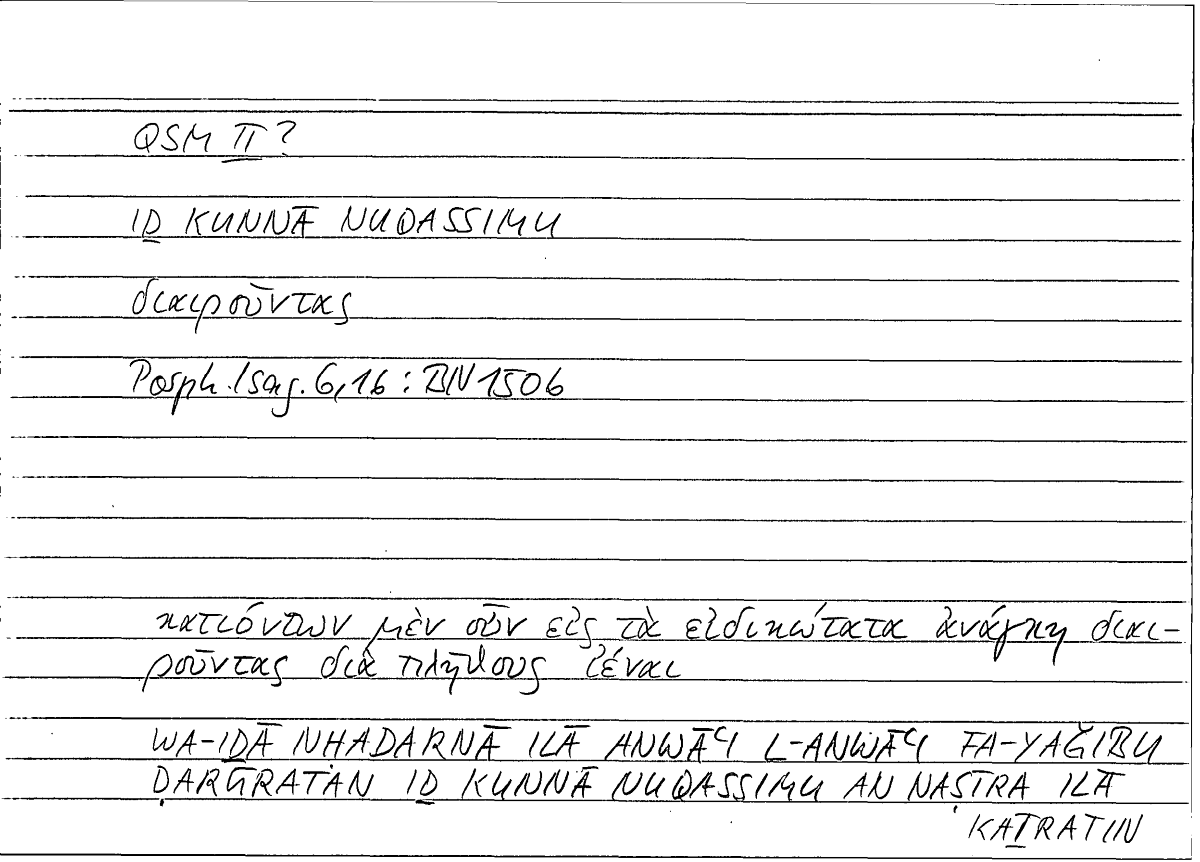 QSM II?
IḎ KUNNĀ NUQASSIMU
διαιροῦντας
Porph. Isag. 6,16 : BN 150b
κατιόντων μὲν οὖν εἰς τὰ εἰδικώτατα ἀνάγκη διαι-
ροῦντας διὰ πλήθους ἰέναι
WA-IḎĀ NHADARNĀ ILĀ ANWĀʿI L-ANWĀʿI FA-YAǦIBU
ḌARŪRATAN IḎ KUNNĀ NUQASSIMU AN NAṢĪRA ILĀ
KAṮRATIN